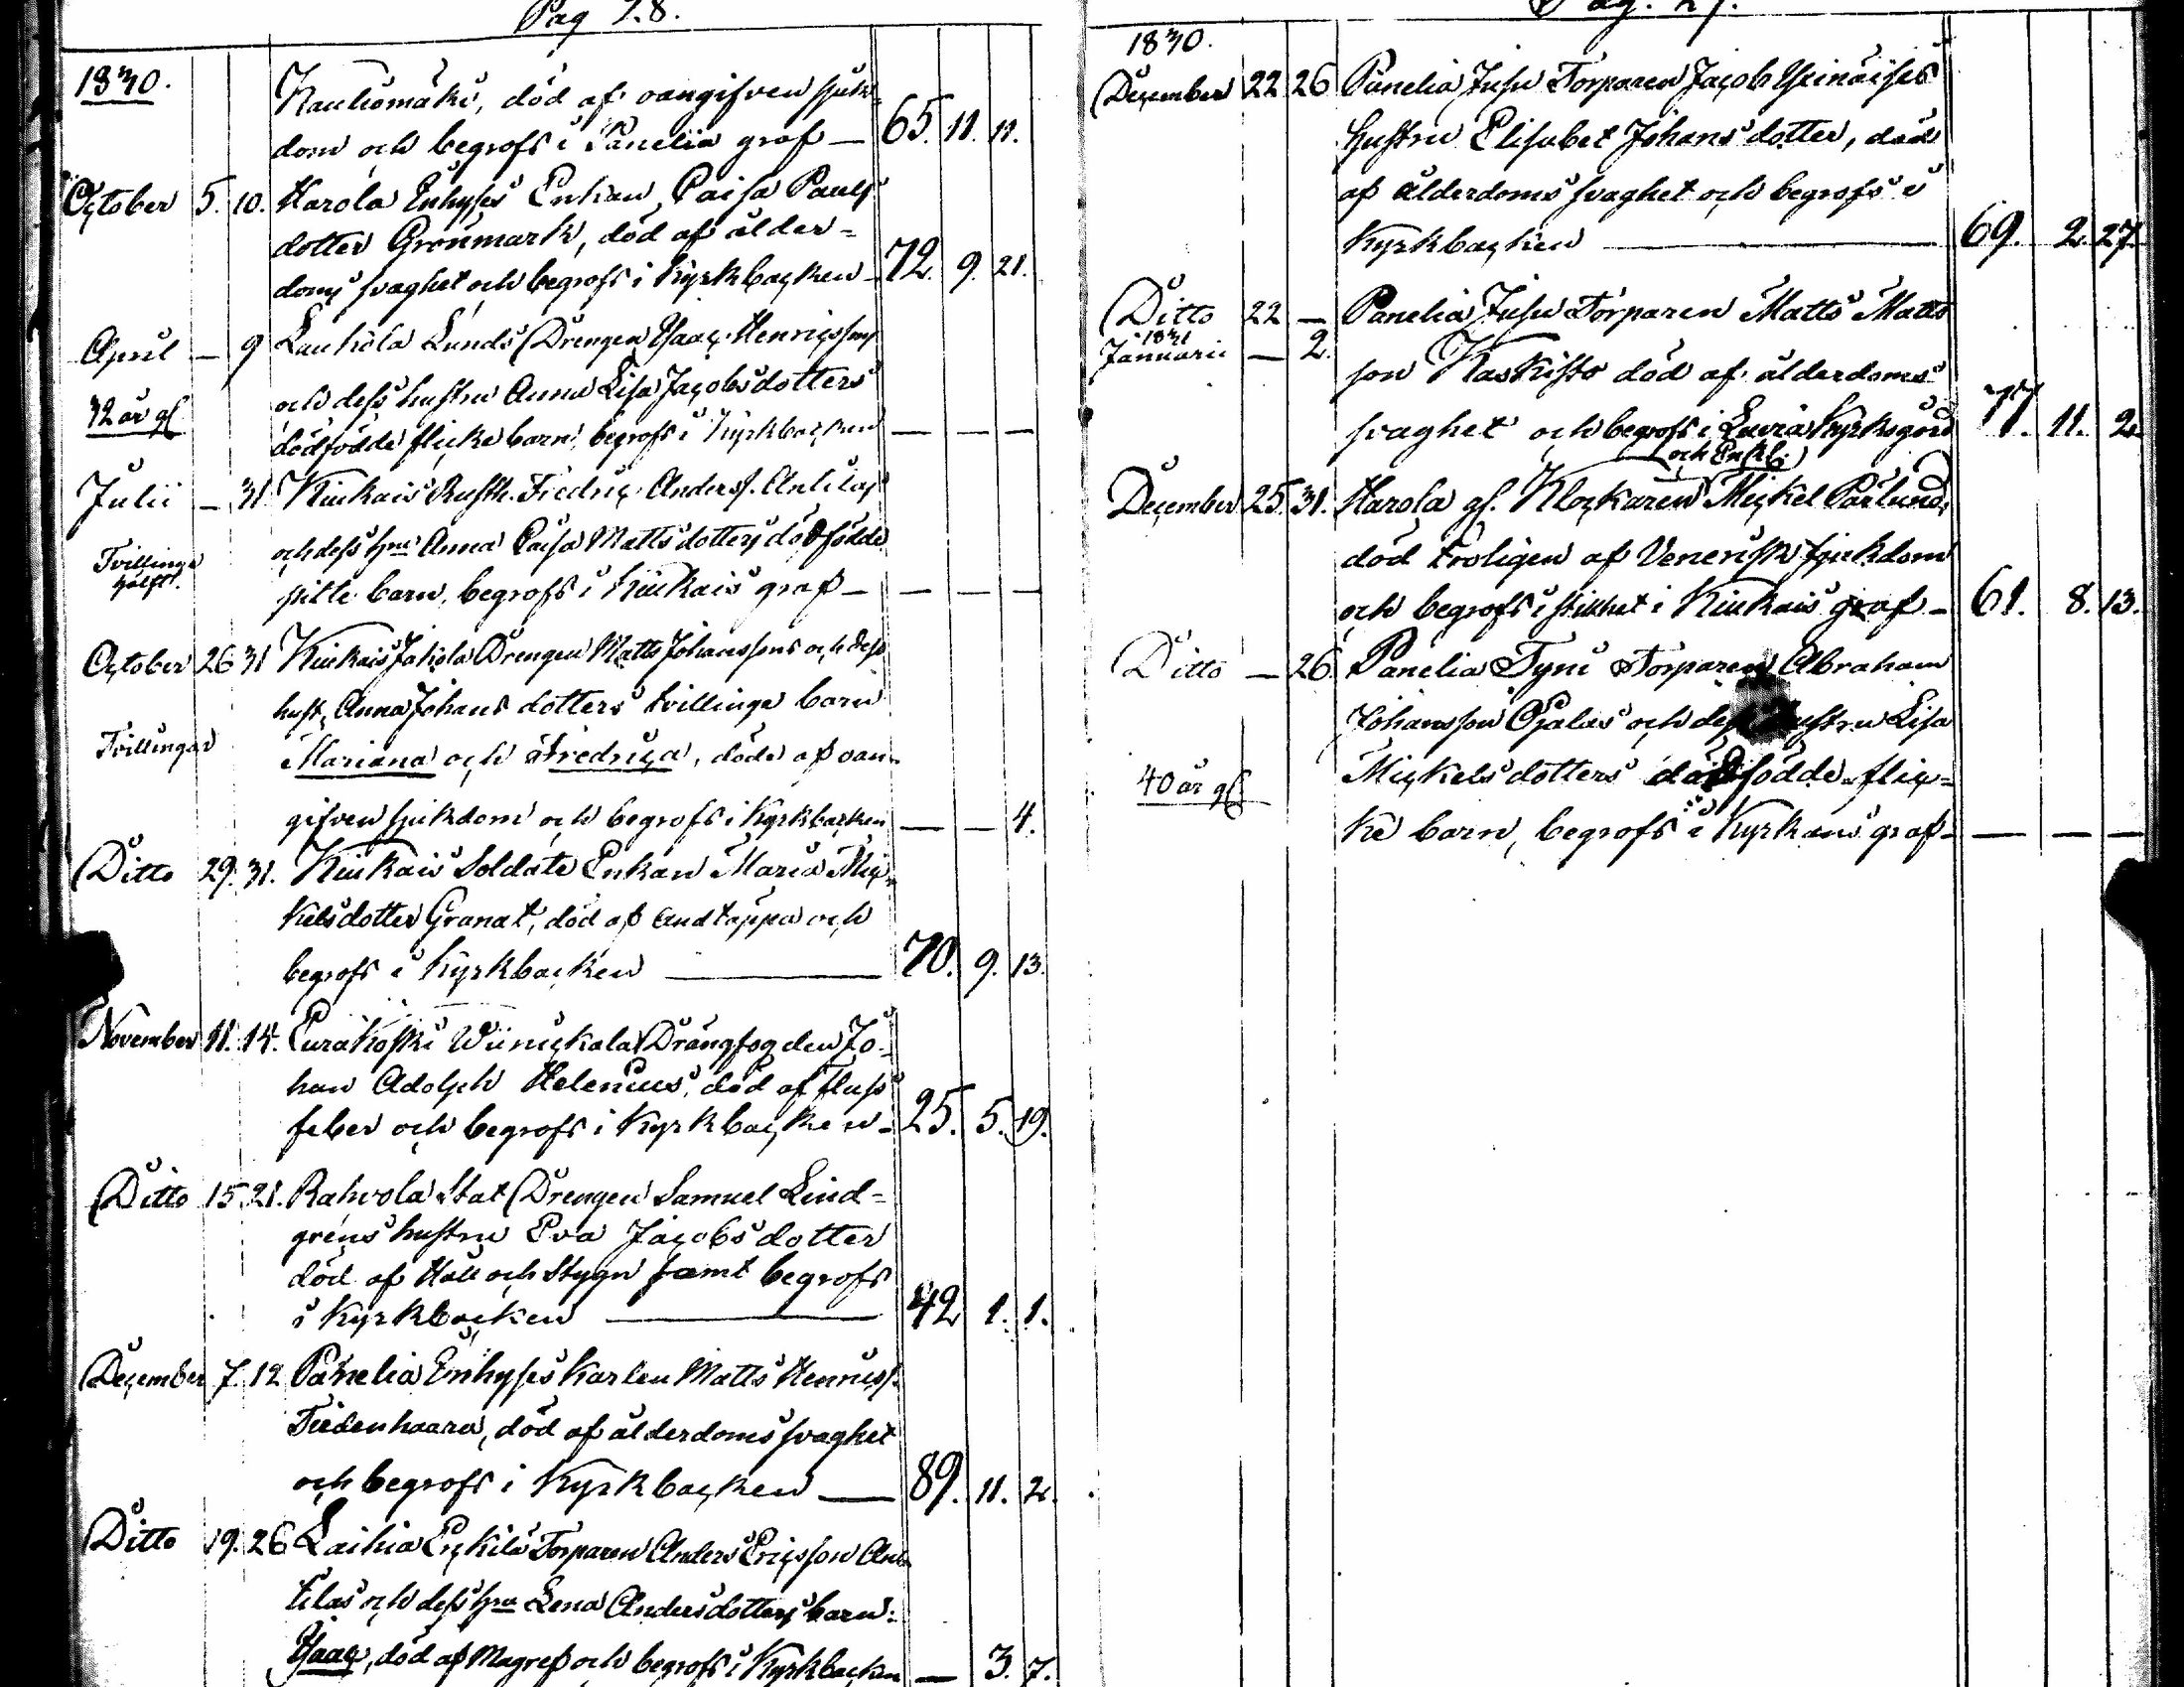 Pag 28.
1830.
Rauhiomäki, död af oangifven sjuk-
dom och begrofs i Panelia graf — 65. 11. 11.
October 5. 10. Harola Inhyses Enkan Caisa Pauls
dotter Grönmark, död af ålder-
doms svaghet och begrofs i Kyrkbacken — 72. 9. 21.
April — 9 Lauhola Lunds Drengen Isaac Henricssons
och dess hustru Anna Lisa Jacobsdotters
32 år gl
dödfödde flicke barn, begrofs i Kyrkbacken — — —
Julii — 31 Kiukais Rusth. Fredric Anderss. Anttilas
och dess Hru Anna Caisa Mattsdotters dödfödde
Tvillinge
hälft.
pilte barn, begrofs i Kiukais graf — — — —
October 26 31 Kiukais Jakola Drengen Matts Johanssons och dess
hust. Anna Johans dotters tvillinge barn
Tvillingar
Mariana och Fredrica, döde af oan-
gifven sjukdom och begrofs i Kyrkbacken — — 4.
Ditto 29. 31. Kiukais Soldats Enkan Maria Mic-
kelsdotter Granat, död af andtäppa och
begrofs i Kyrkbacken — 70. 9. 13.
November 11. 14. Eurakoski Drängfogden Jo-
han Adolph Helenius, död af Fluss
feber och begrofs i Kyrkbacken — 25. 5. 19.
Ditto 15. 21. Rahvola Stat Drengen Samuel Lind-
grens hustru Eva Jacobs dotter
död af Håll och Stygn samt begrofs
i Kyrkbacken — 42 1. 1.
December 7. 12 Panelia Inhyses Karlen Matts Henricss.
Tiedenhaara, död af ålderdoms svaghet
och begrofs i Kyrkbacken — 89. 11. 2.
Ditto 19. 26 Laihia Eckilä Torparen Anders Ericsson An-
tilas och dess Hru Lena Andersdotters barn:
Isaac, död af Magref och begrofs i Kyrkbacken — 3. 7.
Pag. 29.
1830.
December 22 26 Panelia Jusu Torparen Jacob Heinäises
hustru Elisabet Johans dotter, död
af ålderdoms svaghet och begrofs i
Kyrkbacken — 69. 2. 27
Ditto 22 — Panelia Jusu Torparen Matts Matts
1831
Januarii — 2.
son Kaskisto död af ålderdoms
svaghet och begrofs i Luvia Kyrkogård 71. 11. 2.
och Enkl.
December 25. 31. Harola gl. Klockaren Mickel Pärlund,
död troligen af Venerisk sjukdom
och begrofs i stillhet i Kiukais graf — 61. 8. 13.
Ditto — 26. Panelia Tyni Torparen Abraham
Johansson Ojalas och dess hustru Lisa
40 år gl
Mickels dotters dödfödde flic-
ke barn, begrofs i Kyrkans graf — — — —